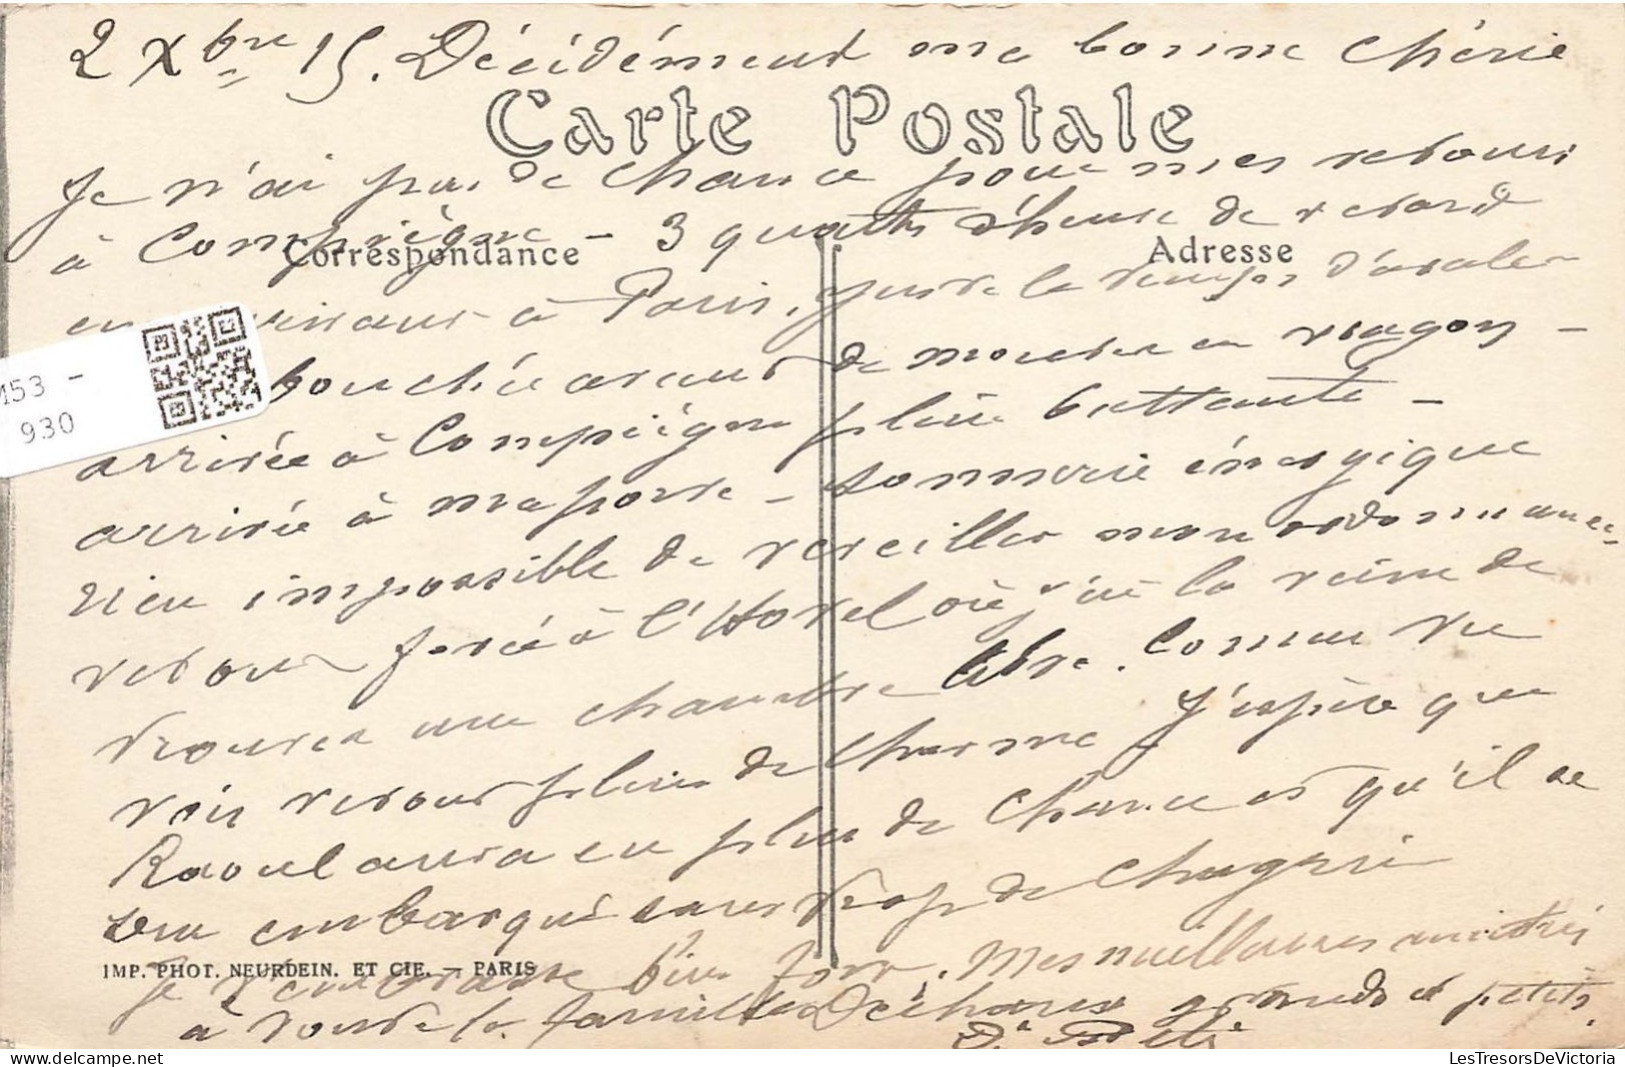 2 Xbre 15. Décidément ma bonne Chérie
Carte Postale
Je n'ai pas de chance pour mes retours
à Compiègne - 3 quarts d'heure de retard
Correspondance
Adresse
en à Paris. Juste le temps d'avaler
M53 -
930
bouchée avant de monter en wagon -
arrivée à Compiègne pluie battante -
arrivée à ma porte - sonnerie énergique
rien impossible de réveiller mon ordonnance -
retour forcé à l'Hotel où j'ai la veine de
trouver une chambre libre. Comme tu
vois retour plein de charme. J'espère que
Raoul aura eu plus de chance et qu'il se
sera embarqué sans trop de chagrin
IMP. PHOT. NEURDEIN. ET CIE. - PARIS
Je t'embrasse bien fort. Mes meilleures amitiés
à toute la famille grands et petits.
LesTresorsDeVictoria